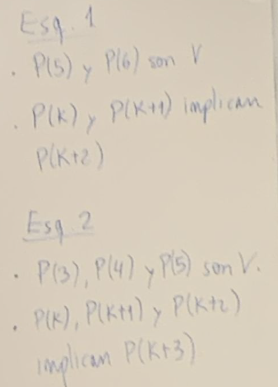 Esq. 1
· P(5) y P(6) son V
· P(K) y P(K+1) implican
P(K+2)
Esq. 2
· P(3), P(4) y P(5) son V.
· P(K), P(K+1) y P(K+2)
implican P(K+3)